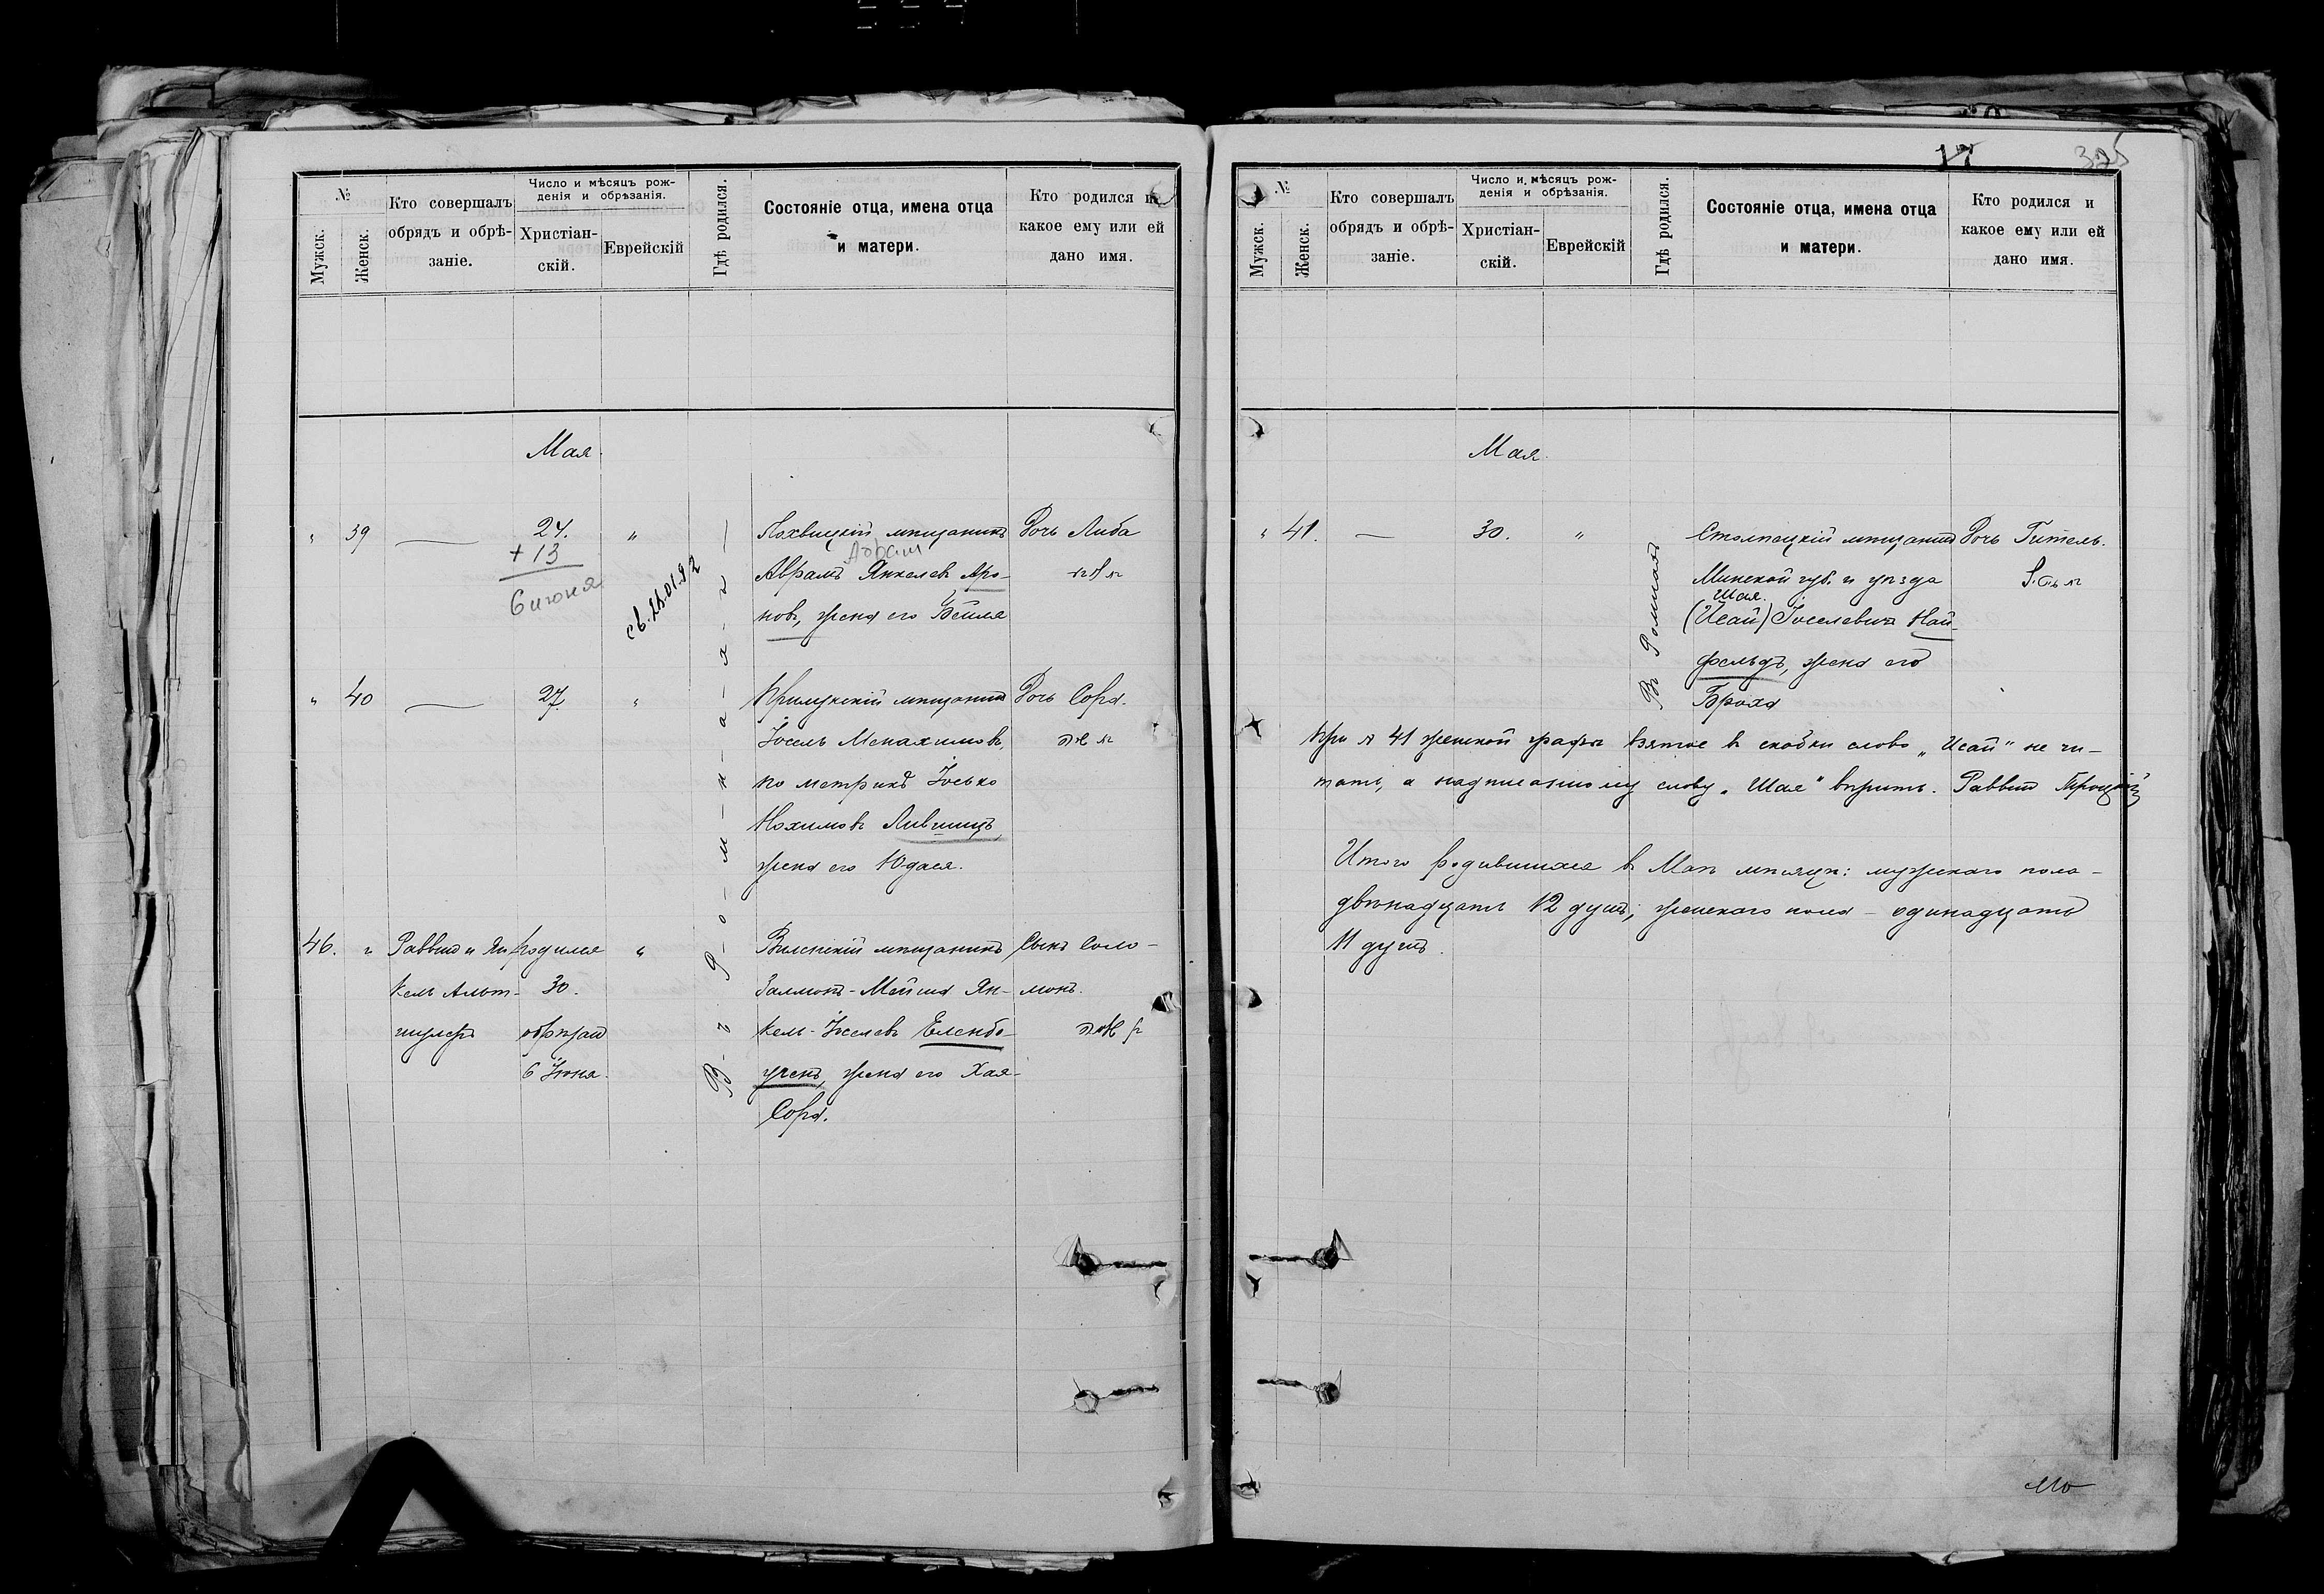 №
Мужск.
Женск.
Кто совершалъ
обрядъ и обрѣ-
заніе.
Число и мѣсяцъ рож-
денія и обрѣзанія.
Христіан-
скій.
Еврейскій
Гдѣ родился.
Состояніе отца, имена отца
и матери.
Кто родился и
какое ему или ей
дано имя.
Мая.
" 39 — 24. "
+ 13
6 июня
св. 28.01.92
Лохвицкій мѣщанинъ
Абрам
Аврамъ Янкелевъ Аро-
новъ, жена его Бейля
Дочь Либа
" 40 — 27. "
Прилукскій мѣщанинъ
Іосель Менахимовъ,
по метрикѣ Іосько
Нохимовъ Лившицъ,
жена его Юдася.
Дочь Сора.
46. " Раввинъ и Ян-
кель Альт-
шулеръ
родился
30.
обрѣзанъ
6 Іюня.
"
В-ъ Р-о-м-н-а-х-ъ
Виленскій мѣщанинъ
Залмонъ-Мейша Ян-
кель-Іоселевъ Еленбо-
генъ, жена его Хая-
Сора.
Сынъ Соло-
монъ.
17
325
№
Мужск.
Женск.
Кто совершалъ
обрядъ и обрѣ-
заніе.
Число и мѣсяцъ рож-
денія и обрѣзанія.
Христіан-
скій.
Еврейскій
Гдѣ родился.
Состояніе отца, имена отца
и матери.
Кто родился и
какое ему или ей
дано имя.
Мая.
" 41. — 30. "
Въ Ромнахъ
Столпецкій мѣщанинъ
Минской губ. и уѣзда
Шая.
(Исай) Іоселевичъ Най-
фельдъ, жена его
Броха
Дочь Гитель.
При № 41 женской графы взятое въ скобки слово „Исай" не чи-
тать, а надписанному слову „Шая" вѣрить. Раввинъ Троцкій
Итого родившихся въ Маѣ мѣсяцѣ: мужскаго пола -
двѣнадцать 12 душъ; женскаго пола - одинадцать
11 душъ.